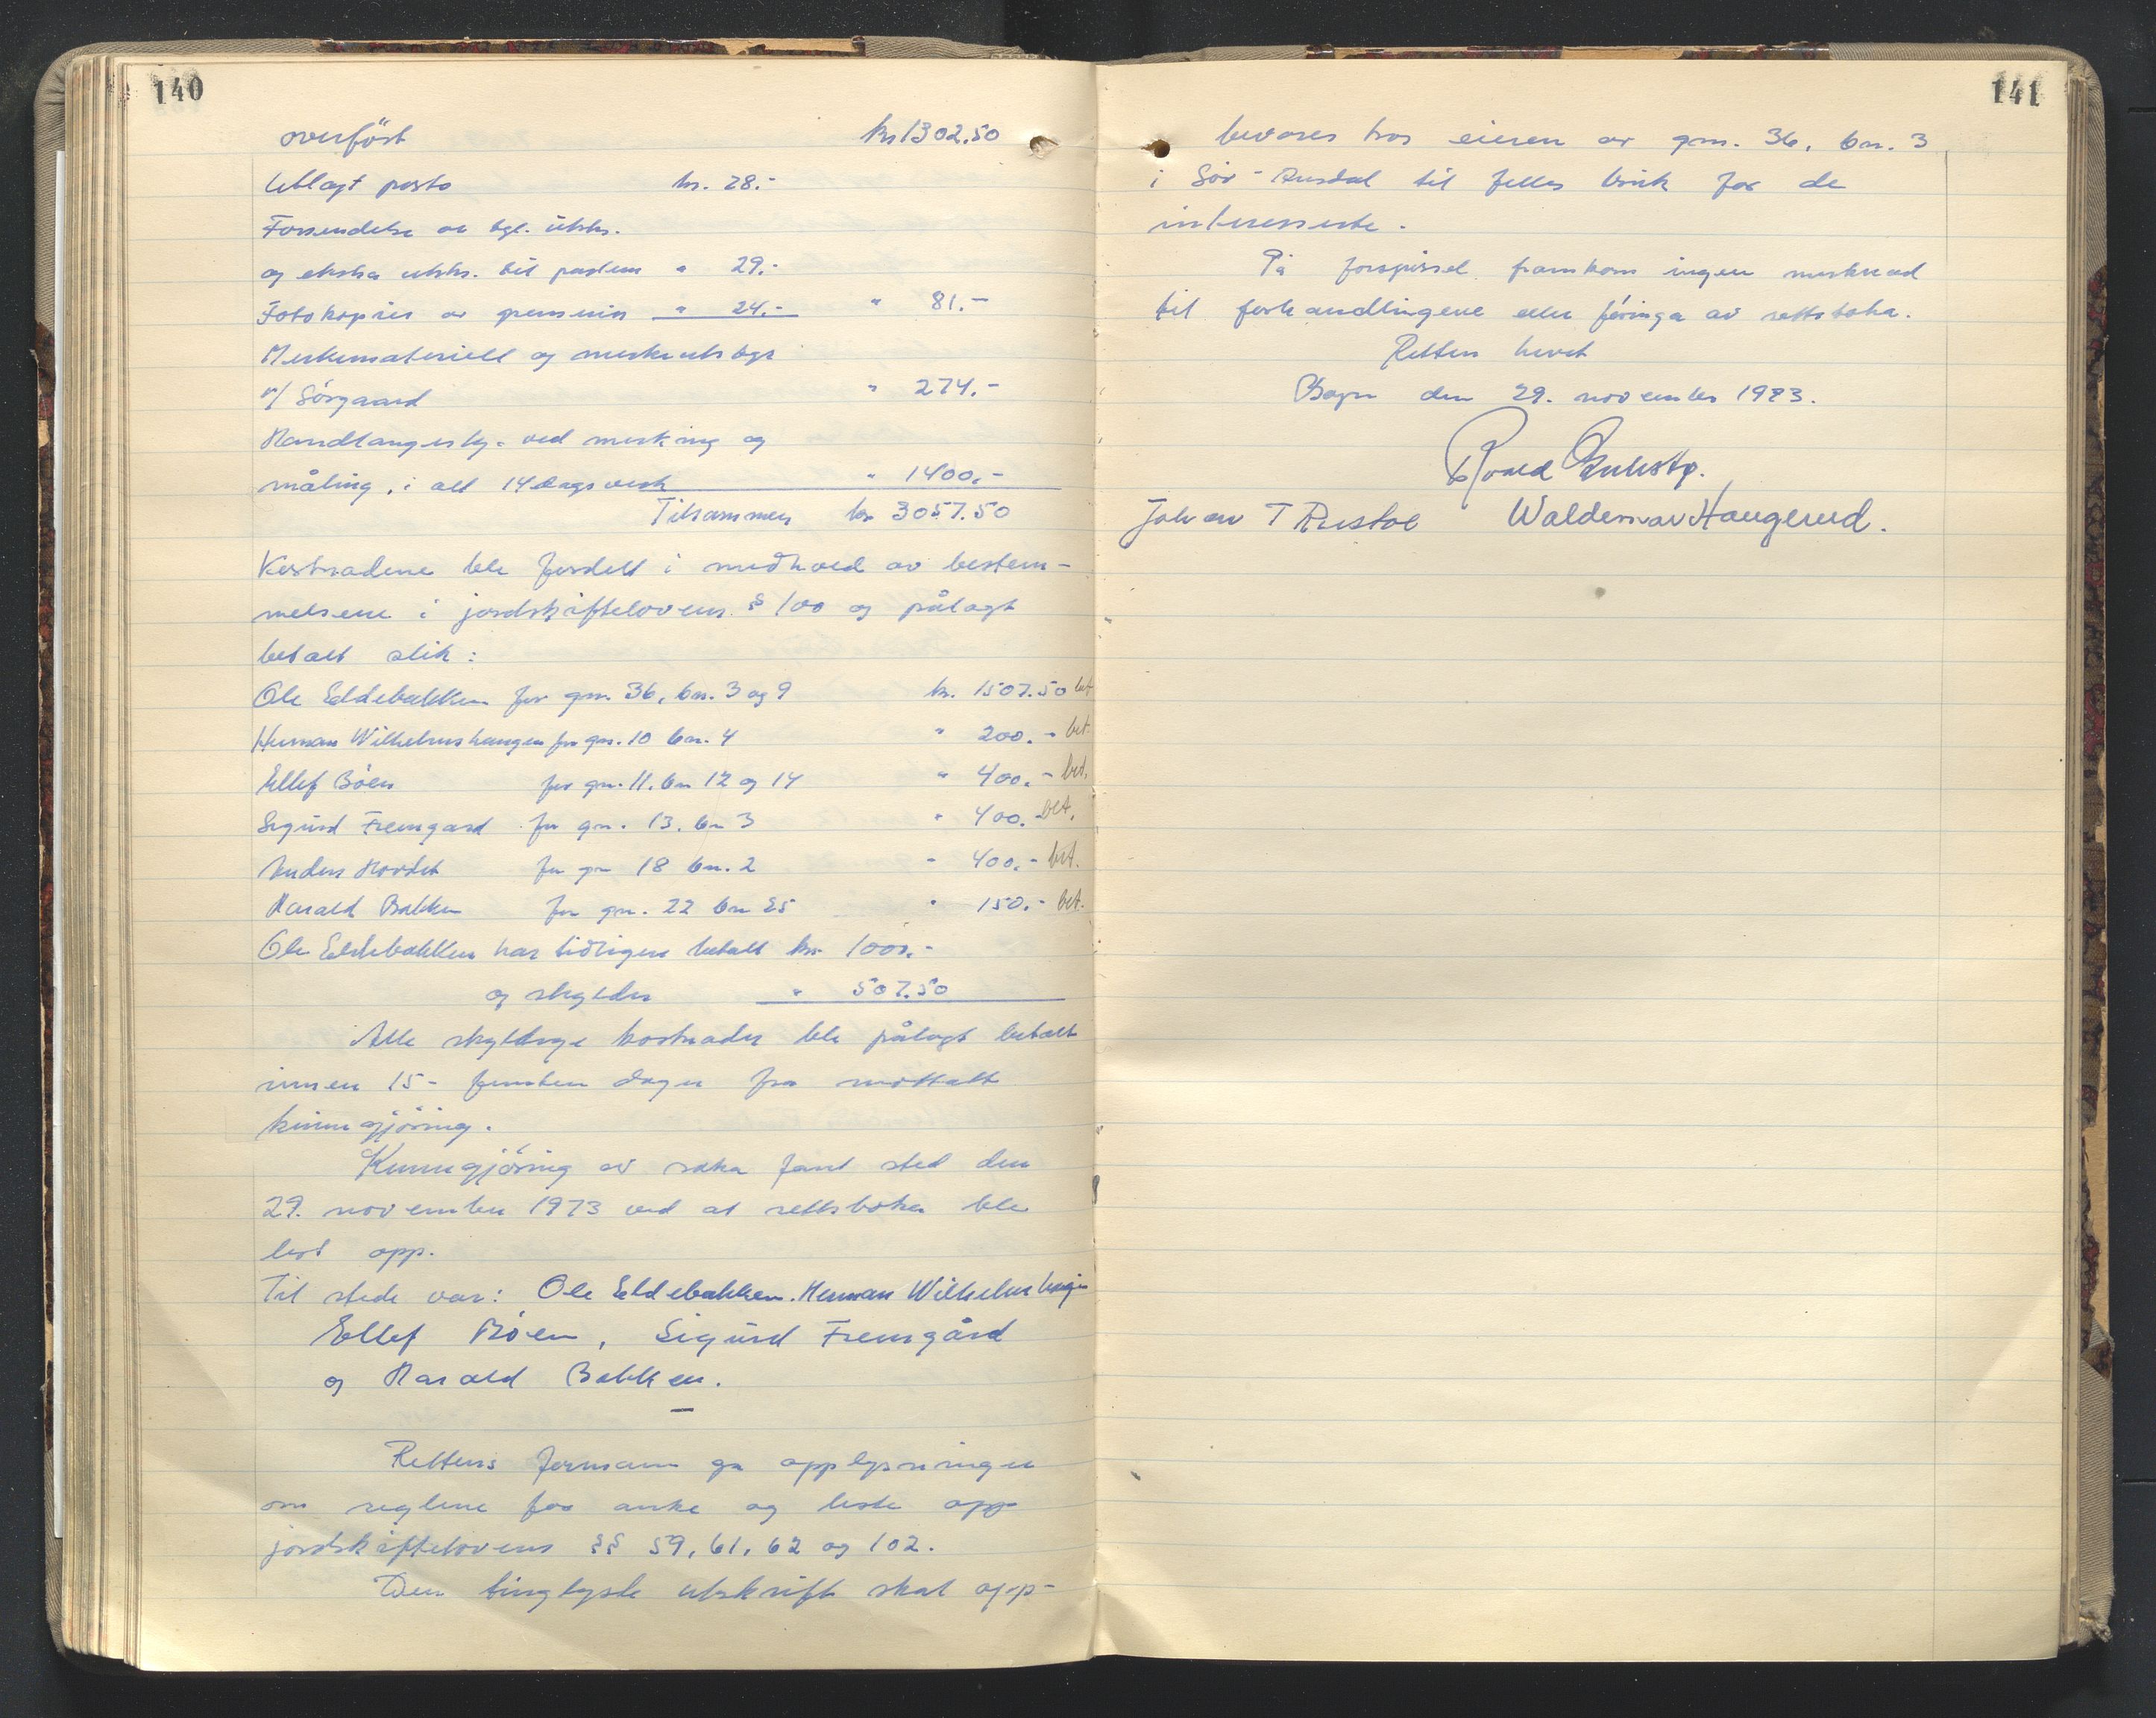 140
overført kr 1302.50
Utlagt porto kr. 28.-
Forsendelse av tgl. utskr.
og ekstra utskr. til partene " 29.-
Fotokopier av grensene " 24.- " 81.-
Merkemateriell og merkeutstyr
v/ Sørgaard " 274.-
Handtangerhj. ved merking og
måling, i alt 14 dagsverk " 1400.-
Tilsammen kr 3057.50
Kostnadene ble fordelt i medhold av bestem-
melsene i jordskiftelovens § 100 og pålagt
betalt slik:
Ole Eldebakken for gnr. 36, bnr. 3 og 9 kr. 1507.50 bet
Herman Wilhelmshaugen for gnr. 10 bnr. 4 " 200.- bet.
Ellef Bøen for gnr. 11. bnr 12 og 14 " 400.- bet.
Sigurd Fremgard for gnr. 13. bnr 3 " 400.- bet.
Anders Hovdet for gnr 18 bnr. 2 " 400.- bet.
Harald Bakken for gnr. 22 bnr 25 " 150.- bet.
Ole Eldebakken har tidligere betalt kr. 1000.-
og skylder " 507.50
Alle skyldige kostnader ble pålagt betalt
innen 15 - femten dager fra mottatt
kunngjøring.
Kunngjøring av saka fant sted den
29. november 1973 ved at rettsboka ble
lest opp.
Til stede var: Ole Eldebakken. Herman Wilhelmshaugen
Ellef Bøen, Sigurd Fremgård
og Harald Bakken.
Rettens formann ga opplysninger
om reglene for anke og leste opp
jordskiftelovens §§ 59, 61, 62 og 102.
Den tinglyste utskrift skal opp-
141
bevares hos eieren av gnr. 36, bnr. 3
i Sør-Aurdal til felles bruk for de
interesserte.
På forespørsel framkom ingen merknad
til forhandlingene eller føringa av rettsboka.
Retten hevet
Bagn den 29. november 1973.
Johan T Rustoe Waldemar Haugerud.